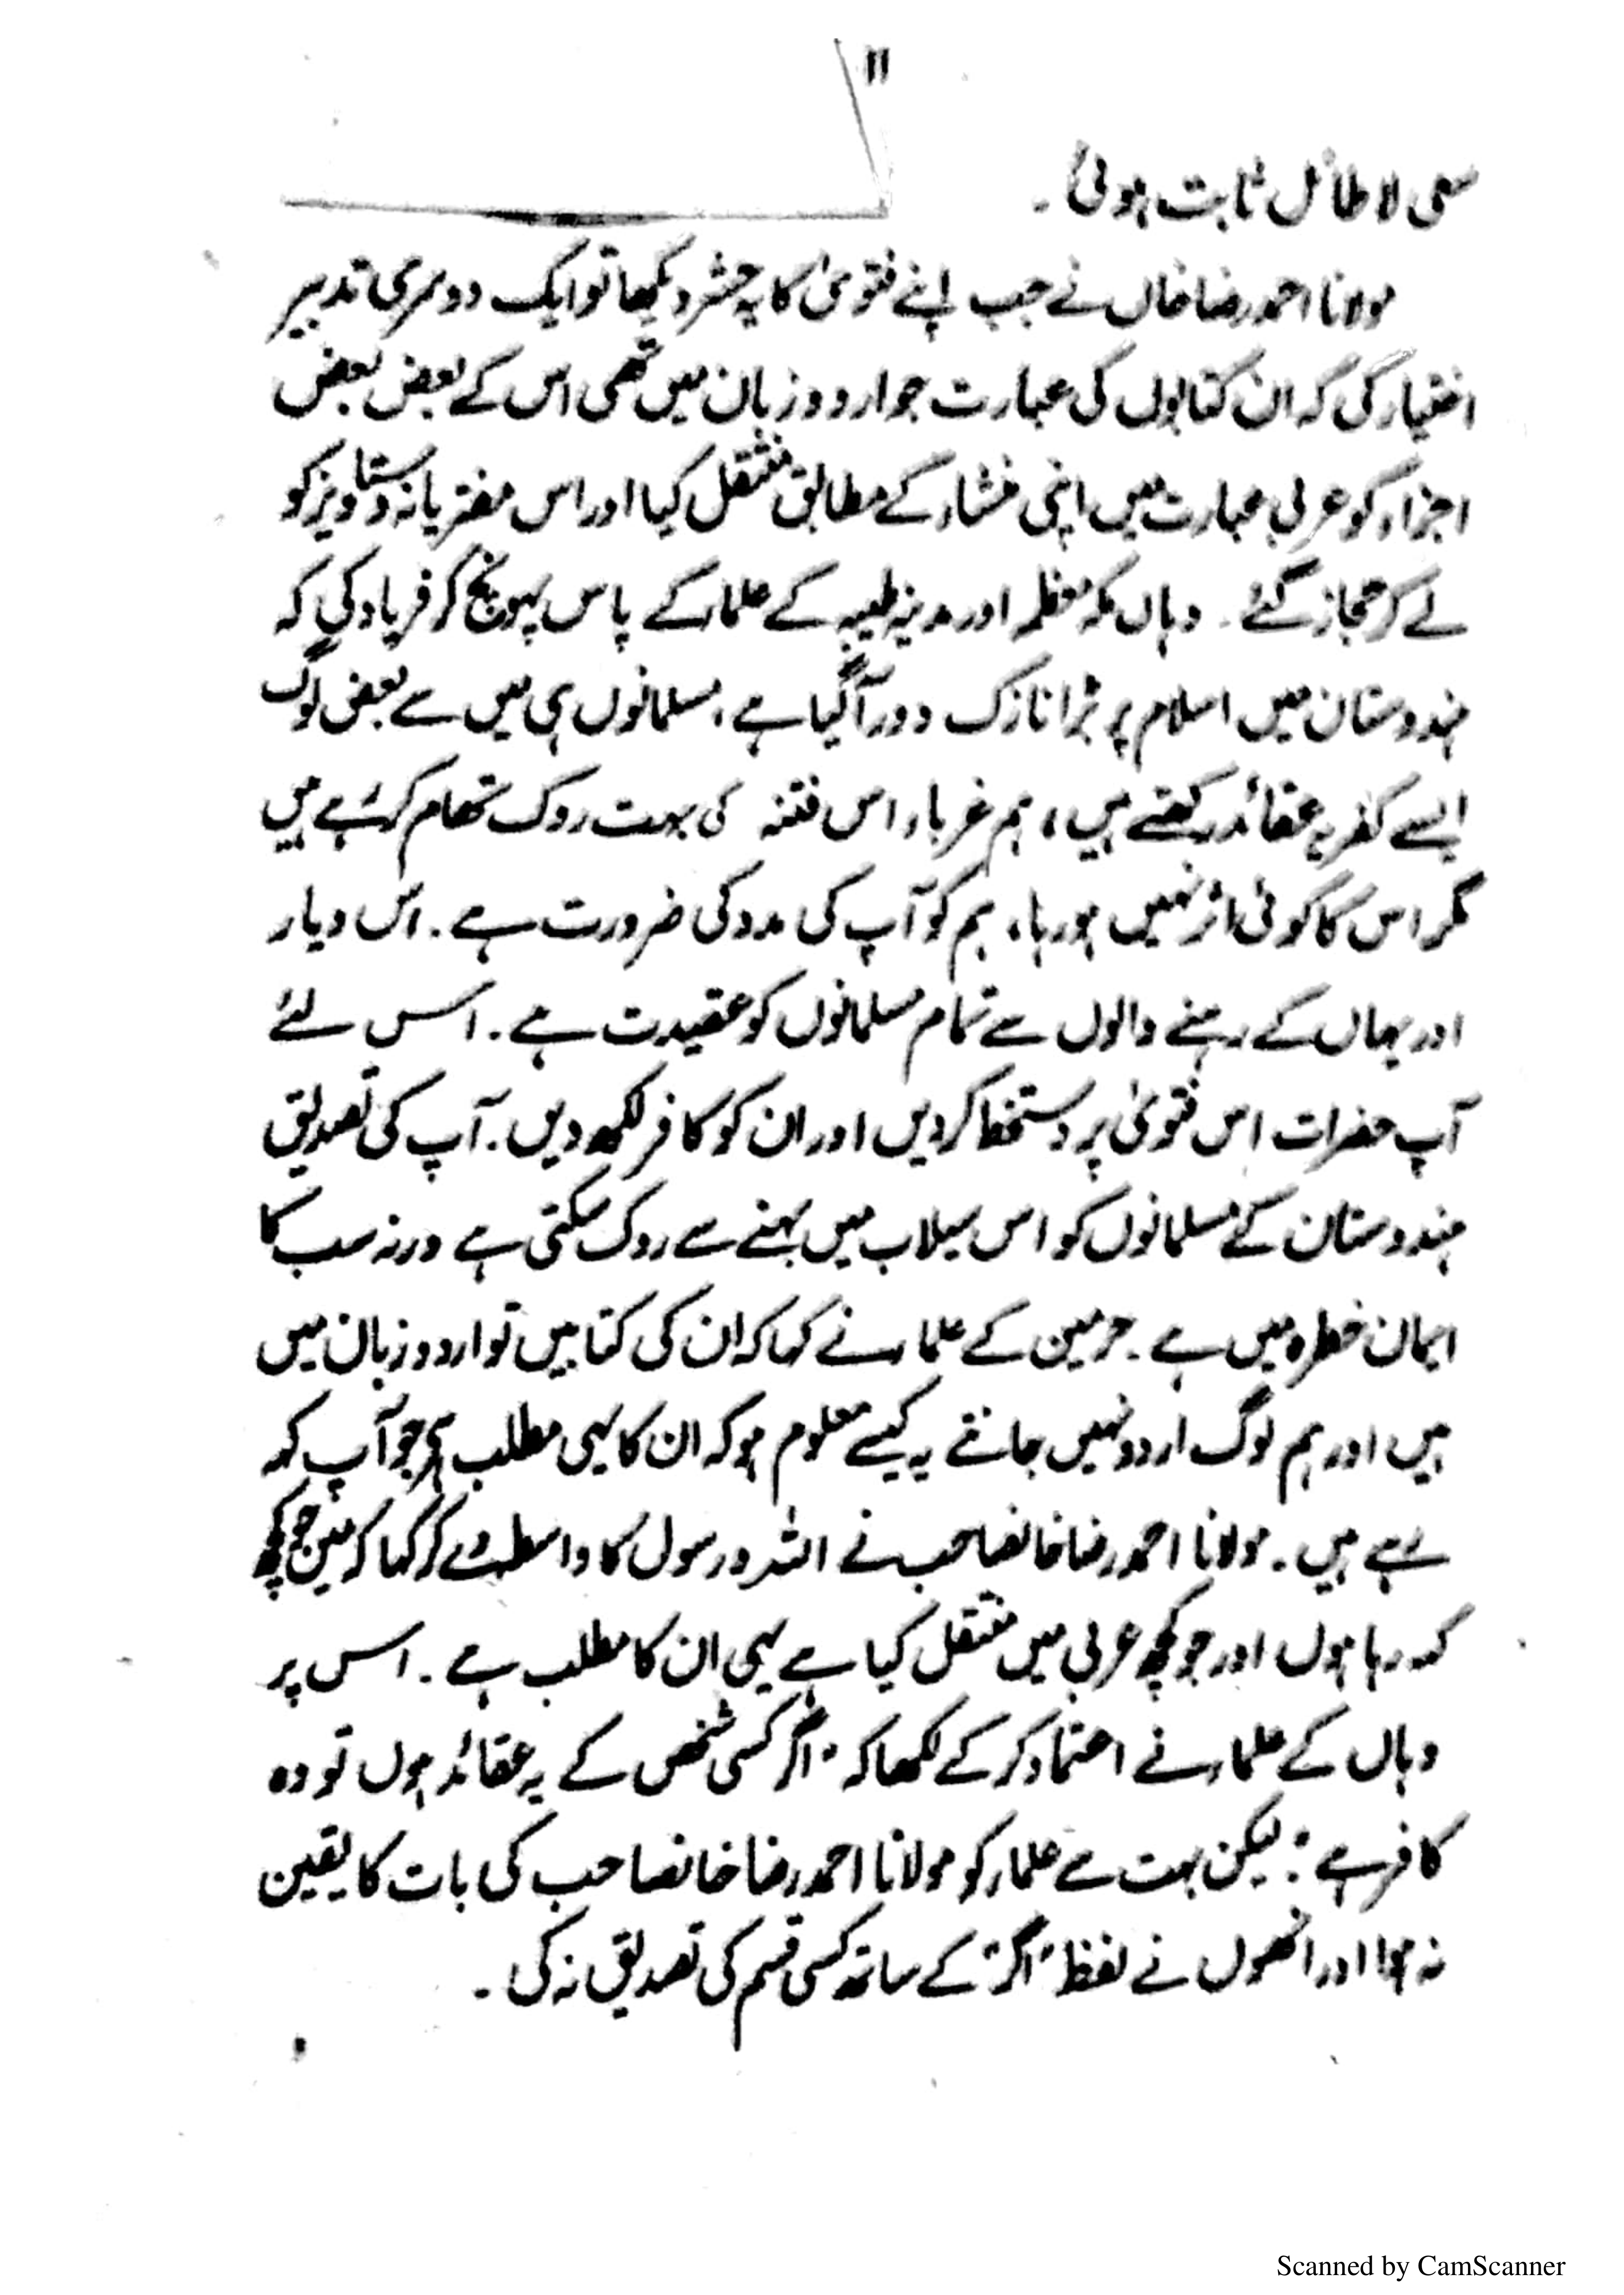 ۱۱
سعی لا طائل ثابت ہوئی۔
مولانا احمد رضا خاں نے جب اپنے فتویٰ کا یہ حشر دیکھا تو ایک دوسری تدبیر
اختیار کی کہ ان کتابوں کی عبارت جو اردو زبان میں تھی اس کے بعض بعض
اجزاء کو عربی عبارت میں اپنی منشاء کے مطابق منتقل کیا اور اس مفتریانہ دستاویز کو
لے کر حجاز گئے۔ وہاں مکہ معظمہ اور مدینہ طیبہ کے علماء کے پاس پہونچ کر فریاد کی کہ
ہندوستان میں اسلام پر بڑا نازک دور آگیا ہے، مسلمانوں ہی میں سے بعض لوگ
ایسے کفریہ عقائد رکھتے ہیں، ہم غرباء اس فتنہ کی بہت روک تھام کر رہے ہیں
مگر اس کا کوئی اثر نہیں ہو رہا، ہم کو آپ کی مدد کی ضرورت ہے۔ اس دیار
اور یہاں کے رہنے والوں سے تمام مسلمانوں کو عقیدت ہے۔ اس لئے
آپ حضرات اس فتویٰ پر دستخط کر دیں اور ان کو کافر لکھ دیں۔ آپ کی تصدیق
ہندوستان کے مسلمانوں کو اس سیلاب میں بہنے سے روک سکتی ہے ورنہ سب کا
ایمان خطرہ میں ہے۔ حرمین کے علماء نے کہا کہ ان کی کتابیں تو اردو زبان میں
ہیں اور ہم لوگ اردو نہیں جانتے یہ کیسے معلوم ہو کہ ان کا یہی مطلب ہے جو آپ کہہ
رہے ہیں۔ مولانا احمد رضا خانصاحب نے اللہ و رسول کا واسطہ دے کر کہا کہ میں جو کچھ
کہہ رہا ہوں اور جو کچھ عربی میں منتقل کیا ہے یہی ان کا مطلب ہے۔ اس پر
وہاں کے علماء نے اعتماد کر کے لکھا کہ "اگر کسی شخص کے یہ عقائد ہوں تو وہ
کافر ہے" لیکن بہت سے علماء کو مولانا احمد رضا خانصاحب کی بات کا یقین
نہ ہوا اور انھوں نے لفظ "اگر" کے ساتھ کسی قسم کی تصدیق نہ کی۔
Scanned by CamScanner